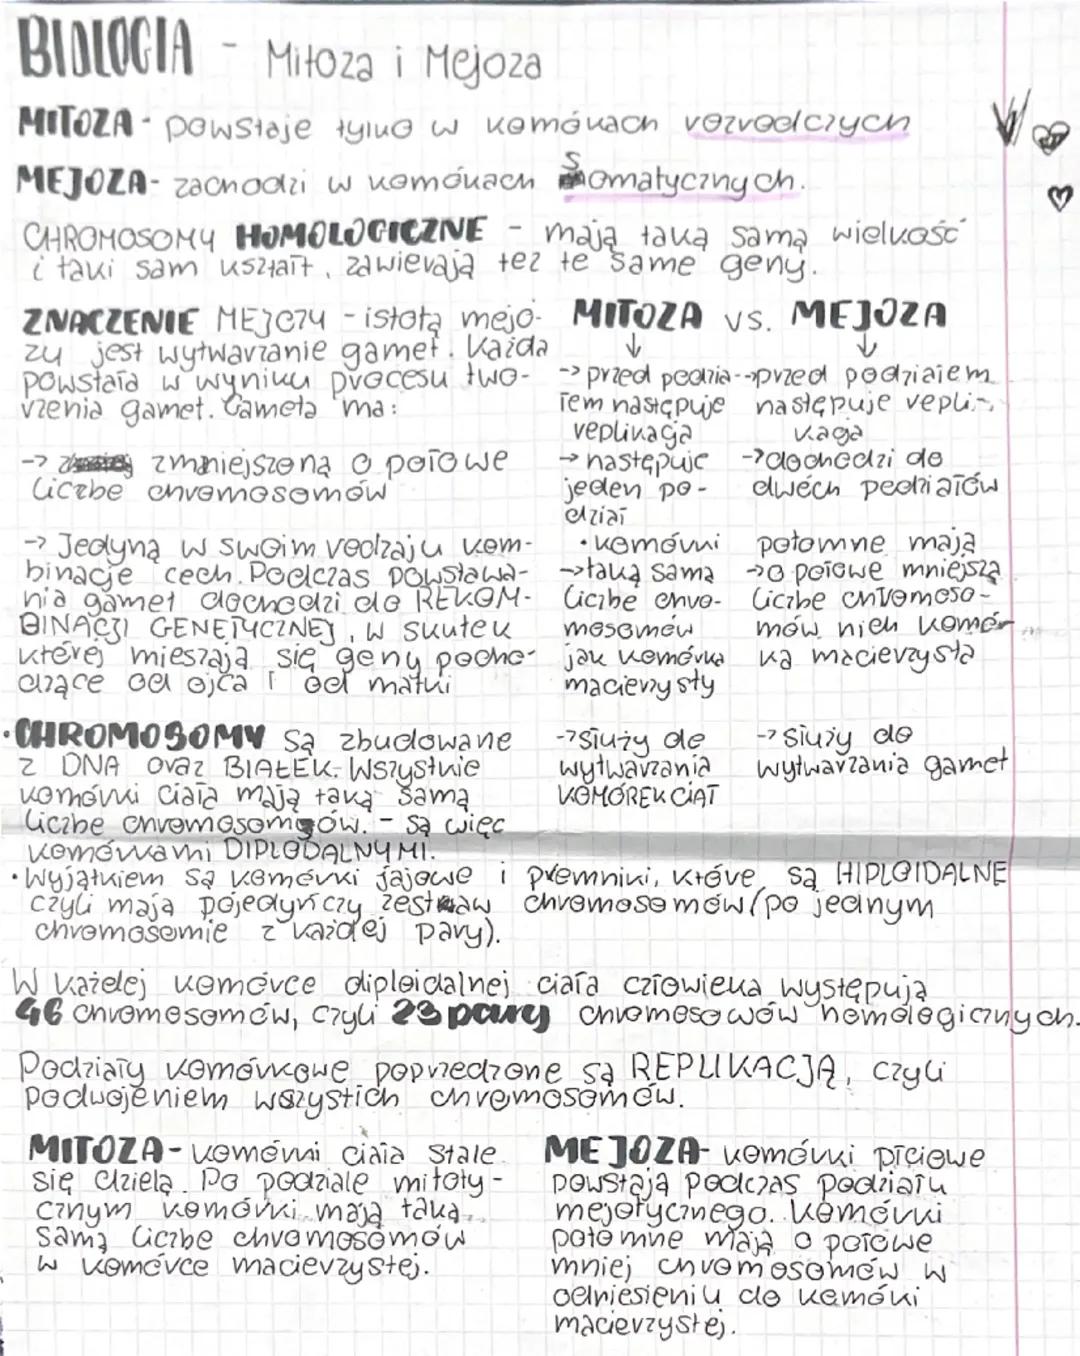 BIOLOGIA - Mitoza i Mejoza
MITOZA - powstaje tylko w komórkach rozrodczych
MEJOZA - zachodzi w komórkach somatycznych.
CHROMOSOMY HOMOLOGICZNE - mają taką samą wielkość
i taki sam kształt, zawierają też te same geny.
ZNACZENIE MEJOZY - istotą mejo-
zy jest wytwarzanie gamet. Każda
powstała w wyniku procesu two-
rzenia gamet. Gameta ma:
-> zmniejszoną o połowe
liczbe chromosomów
-> Jedyną w swoim rodzaju kom-
binacje cech. Podczas powstawa-
nia gamet dochodzi do REKOM-
BINACJI GENETYCZNEJ, w skutek
której mieszają się geny pocho-
dzące od ojca i od matki
MITOZA vs. MEJOZA
↓ ↓
-> przed podzia-
łem następuje
replikacja
-> następuje
jeden po-
dział
• komórki
-> taką sama
liczbe chro-
mosomów
jak komórka
macierzysty
-> służy do
wytwarzania
KOMÓREK CIAŁ
-> przed podziałem
następuje repli-
kacja
-> dochodzi do
dwóch podziałów
potomne mają
-> o połowe mniejszą
liczbe chromoso-
mów nich komór-
ka macierzysta
-> służy do
wytwarzania gamet
• CHROMOSOMY są zbudowane
z DNA oraz BIAŁEK. Wszystkie
komórki ciała mają taką samą
liczbe chromosomów. - są więc
komórkami DIPLODALNYMI.
• Wyjątkiem są komórki jajowe i plemniki, które są HIPLOIDALNE
czyli mają pojedyńczy zestaw chromosomów (po jednym
chromosomie z każdej pary).
W każdej komórce diploidalnej ciała człowieka występują
46 chromosomów, czyli 23 pary chromosowów homologicznych.
Podziały komórkowe poprzedzone są REPLIKACJĄ, czyli
podwojeniem wszystich chromosomów.
MITOZA - komórki ciała stale
się dzielą. Po podziale mitoty-
cznym komórki mają taką
samą liczbe chromosomów
w komórce macierzystej.
MEJOZA - komórki płciowe
powstają podczas podziału
mejotycznego. Komórki
potomne mają o połowe
mniej chromosomów w
odniesieniu do komóki
macierzystej.